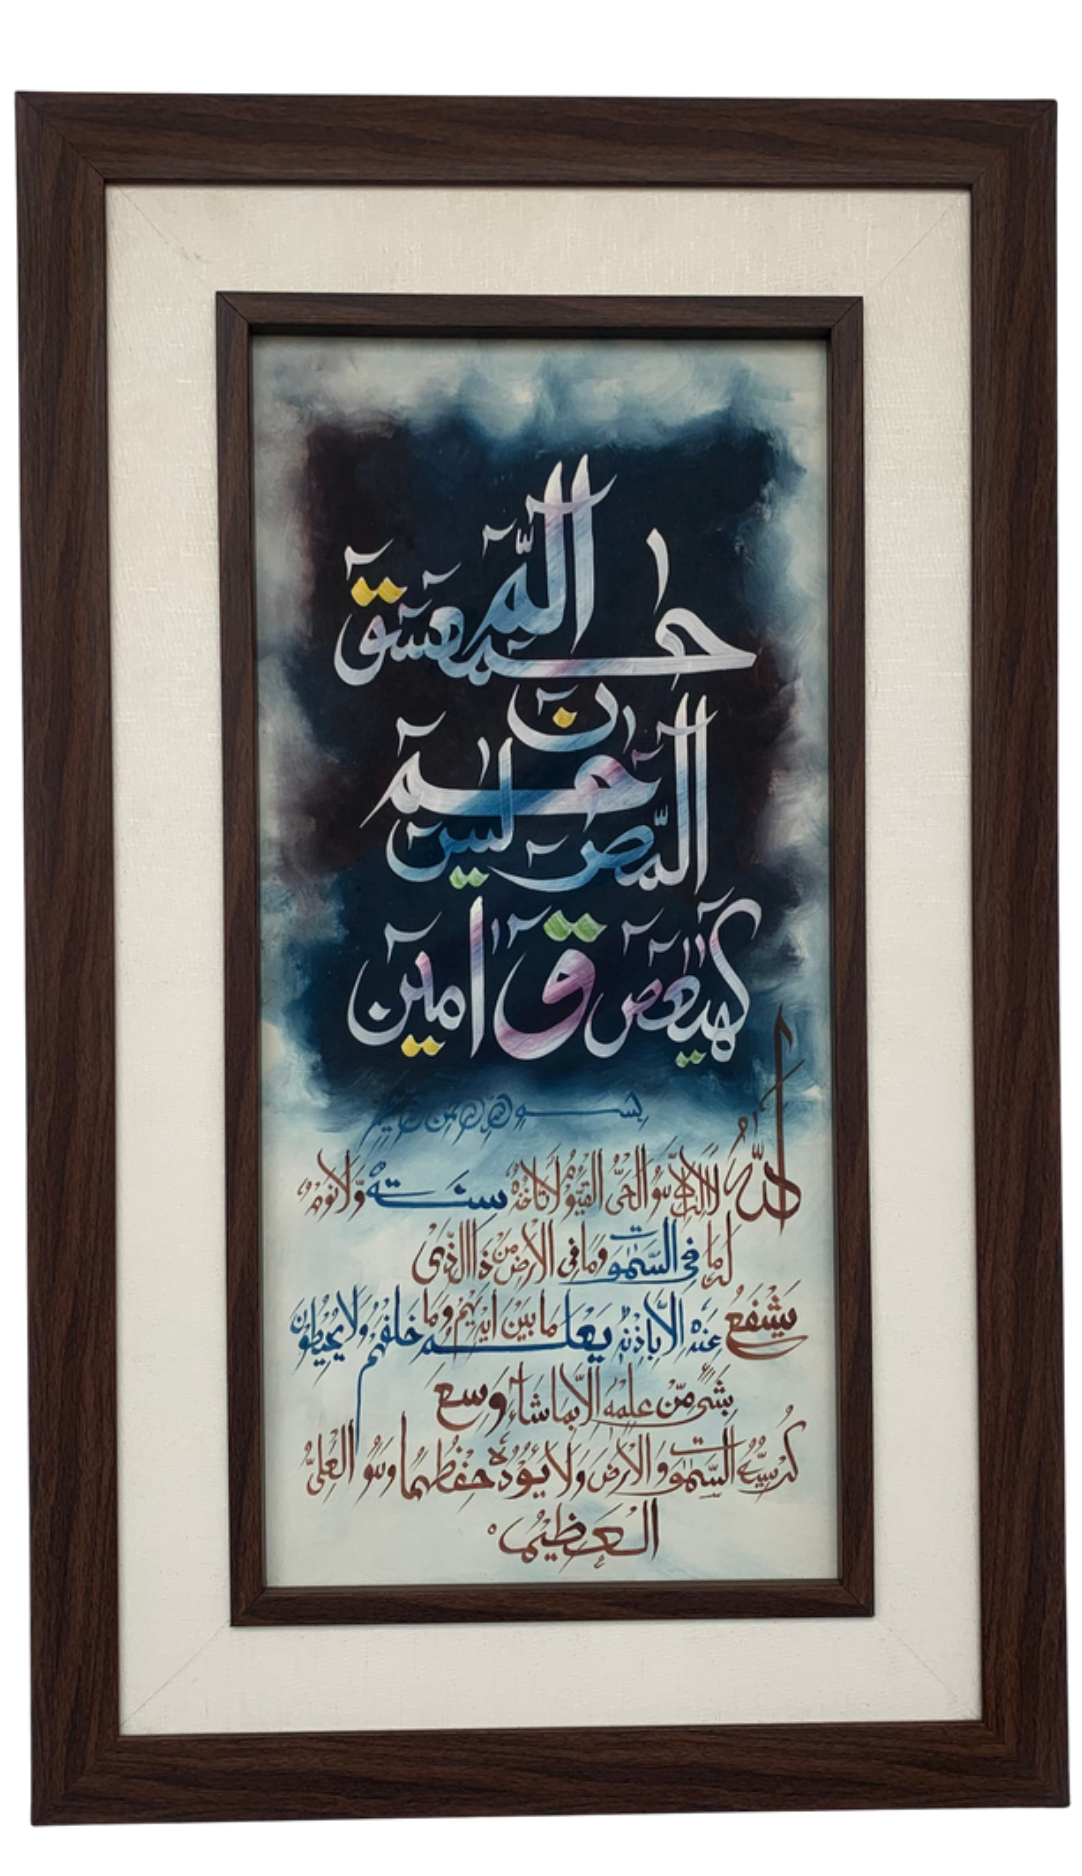 الٓمّٓ
حٰمٓعٓسٓقٓ
نٓ
الٓمّٓصٓ يٰسٓ
كٓهٰيٰعٓصٓ قٓ اٰمین
بسم الله الرحمن الرحيم
اَللّٰهُ لَا اِلٰهَ اِلَّا هُوَ الْحَيُّ الْقَيُّوْمُ لَا تَاْخُذُهٗ سِنَةٌ وَّلَا نَوْمٌ
لَهٗ مَا فِي السَّمٰوٰتِ وَمَا فِي الْاَرْضِ مَنْ ذَا الَّذِيْ
يَشْفَعُ عِنْدَهٗ اِلَّا بِاِذْنِهٖ يَعْلَمُ مَا بَيْنَ اَيْدِيْهِمْ وَمَا خَلْفَهُمْ وَلَا يُحِيْطُوْنَ
بِشَيْءٍ مِّنْ عِلْمِهٖ اِلَّا بِمَا شَآءَ وَسِعَ
كُرْسِيُّهُ السَّمٰوٰتِ وَالْاَرْضَ وَلَا يَـُٔوْدُهٗ حِفْظُهُمَا وَهُوَ الْعَلِيُّ
الْعَظِيْمُ